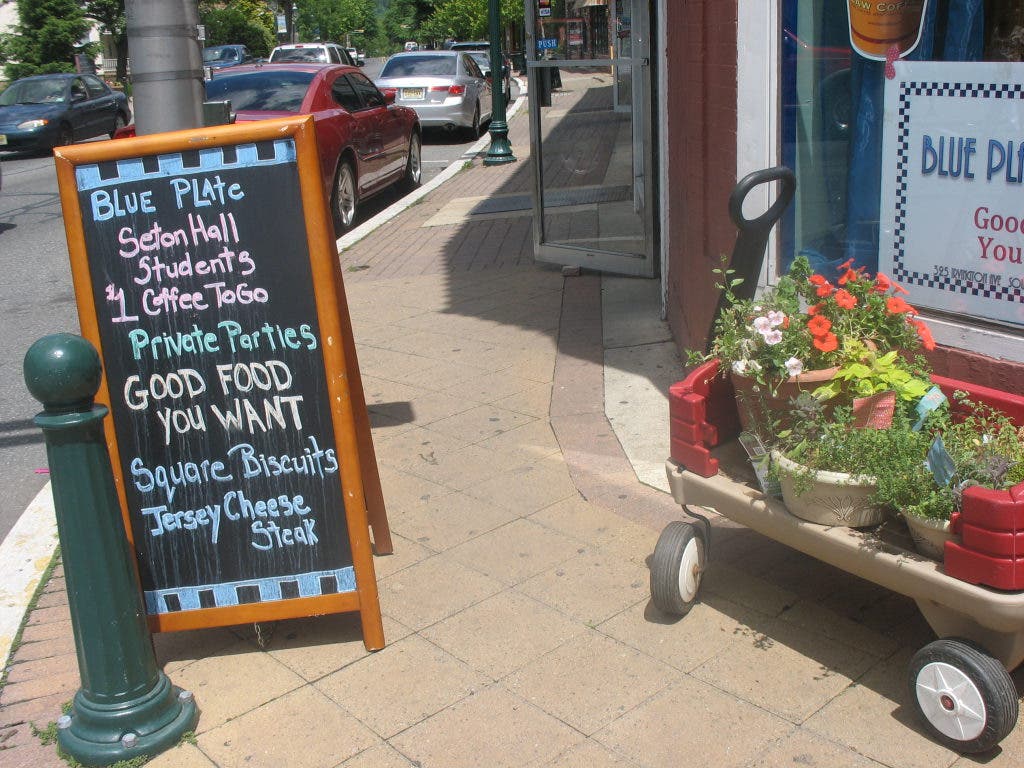 BLUE PLAte
Seton Hall
Students
$1 Coffee To Go
Private Parties
GOOD FOOD
you WANT
Square Biscuits
Jersey Cheese
Steak
PUSH
BLUE PL
Good
You
325 IRVINGTON AVE